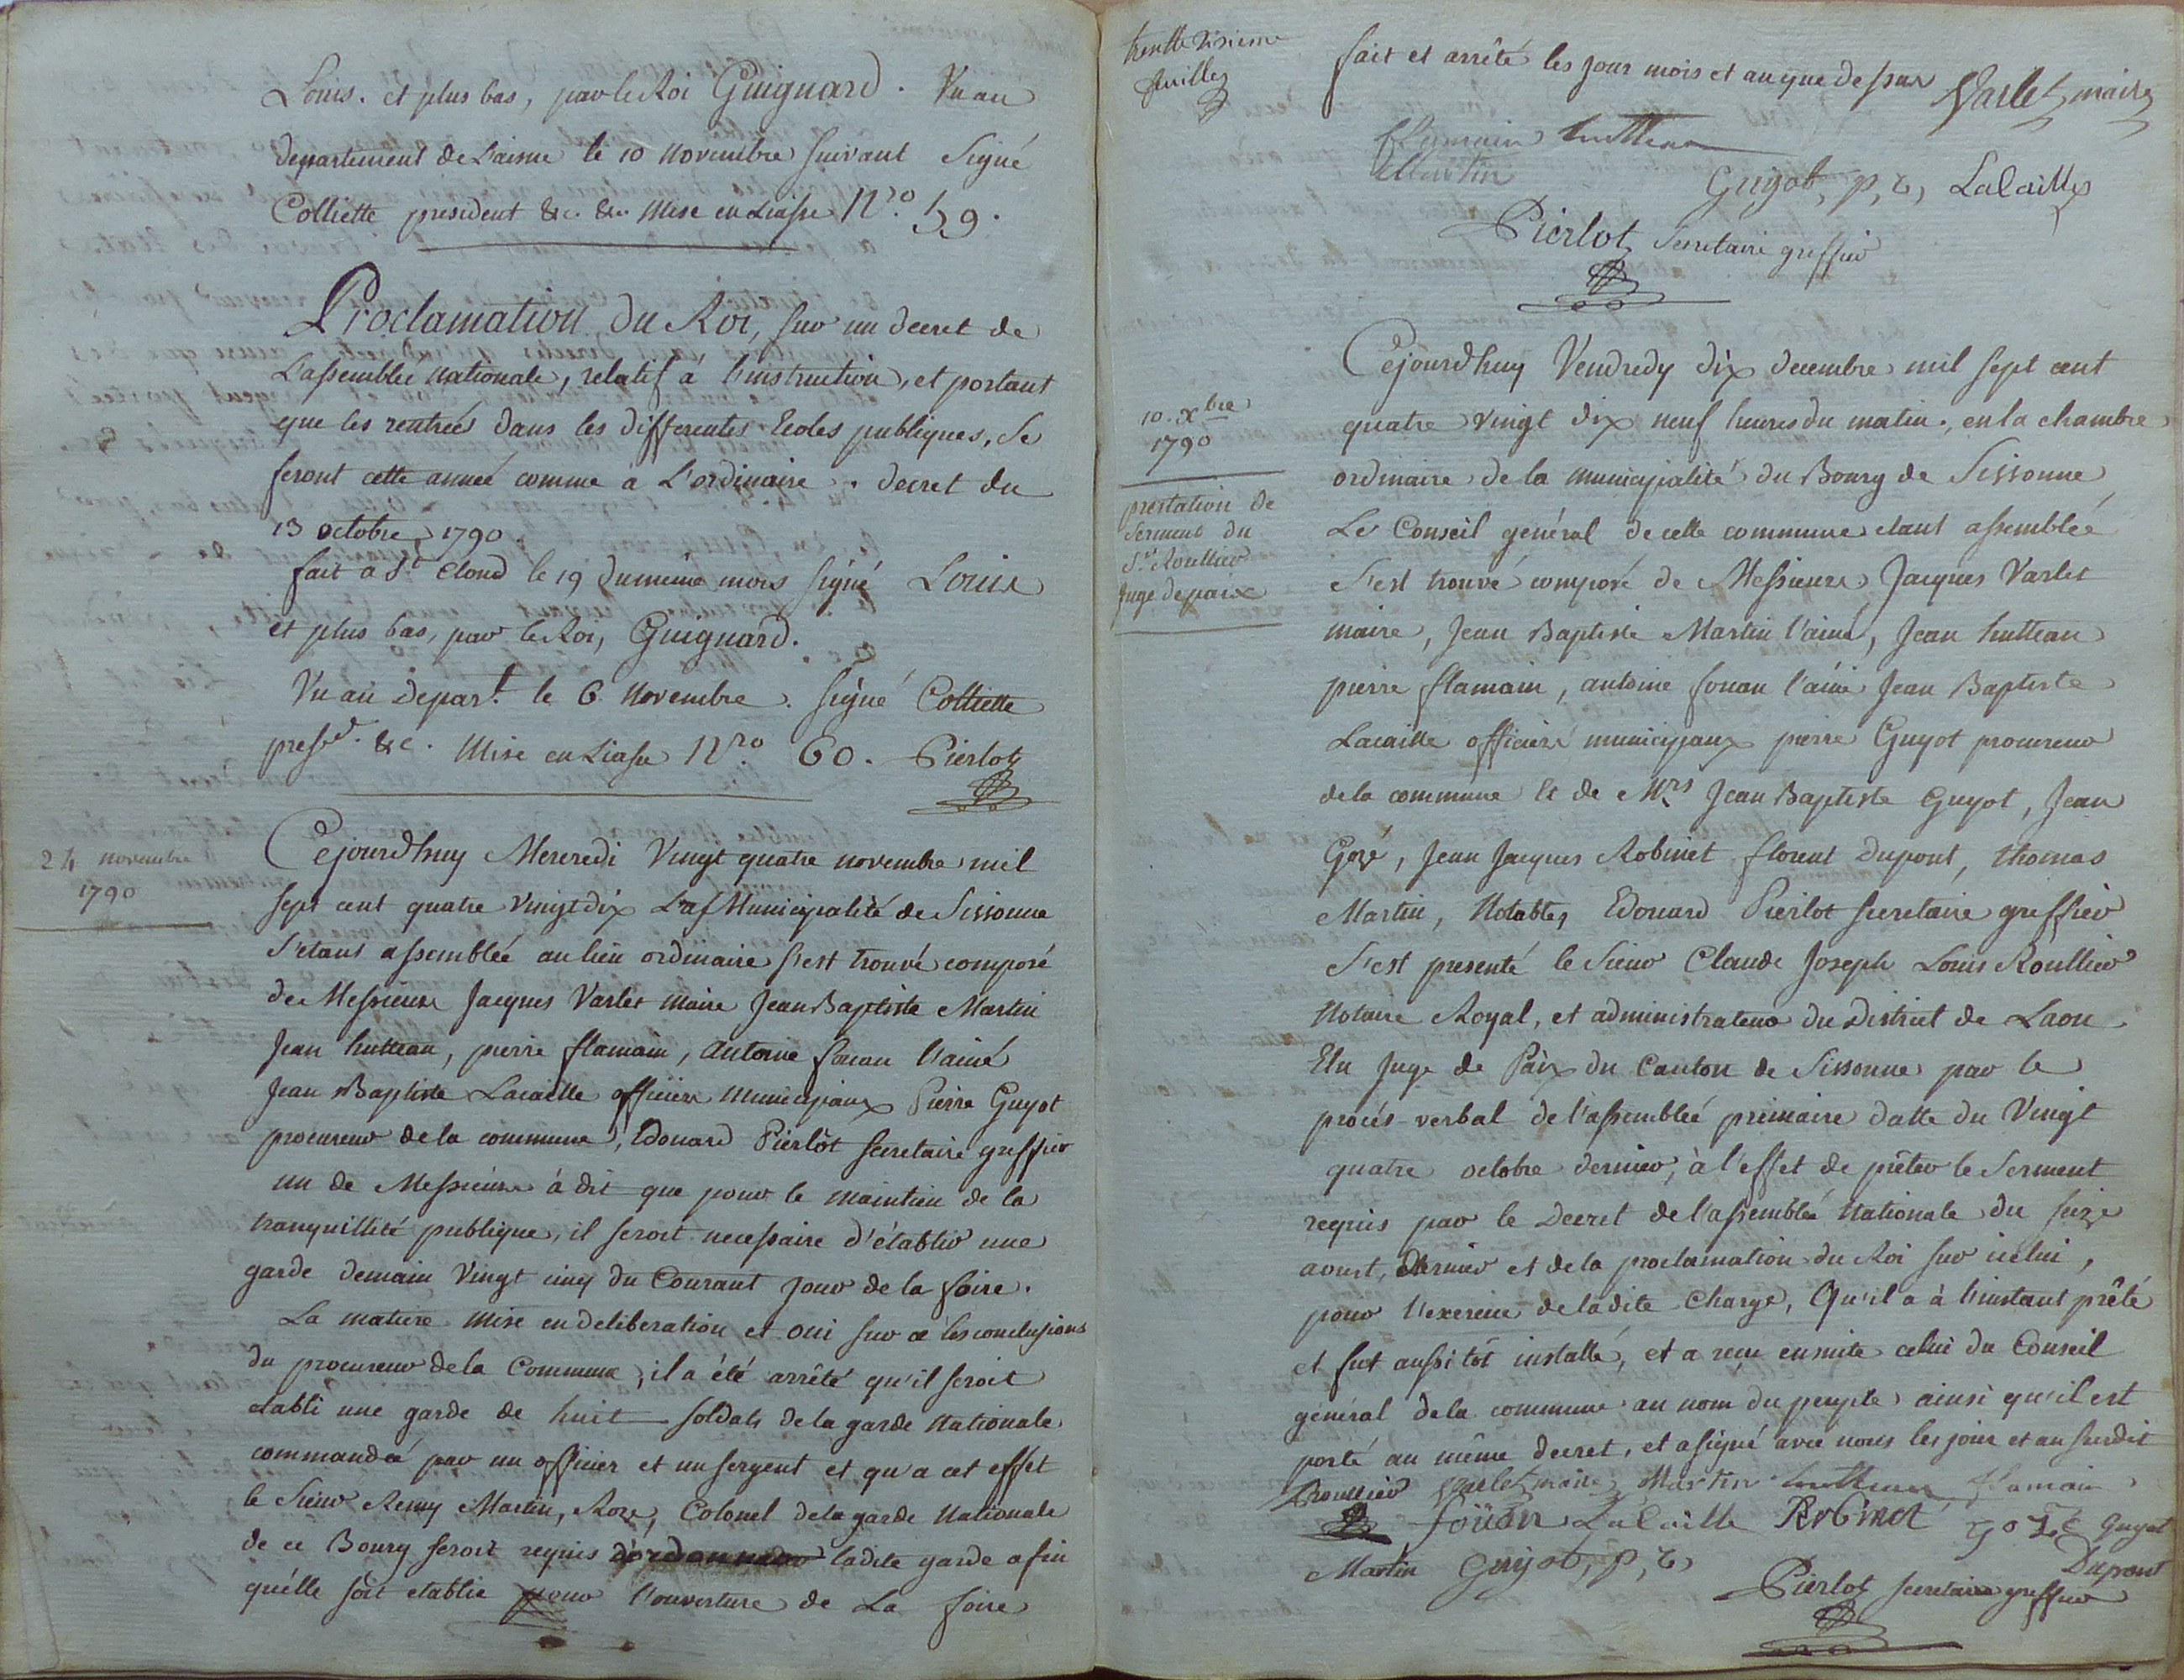 Louis. et plus bas, par le Roi Guignard. Vu au
departement de L'aisne le 10 novembre suivant Signé
Colliette president &c. &c. Mise en Liasse N.ro 59.
Proclamation du Roi, sur un decret de
L'assemblée nationale, relatif à l'instruction, et portant
que les rentrées dans les differentes Ecoles publiques, se
feront cette année comme à L'ordinaire. decret du
13 octobre 1790.
fait à St. Cloud le 19 du même mois signé Louis
et plus bas, par le Roi, Guignard.
Vu au depart. le 6 novembre. signé Colliette
presd. &c. Mise en Liasse N.ro 60. Pierlot
24 novembre
1790
Cejourdhuy Mercredi Vingt quatre novembre mil
sept cent quatre Vingt dix La Municipalité de Sissonne
s'etant assemblée au lieu ordinaire s'est trouvé composé
de Messieurs Jacques Varlet maire Jean Baptiste Martin
Jean hutteau, pierre flamain, Antoine fouan l'ainé
Jean Baptiste Lacaille officiers municipaux Pierre Guyot
procureur de la commune, Edouard Pierlot secretaire greffier
un de Messieurs à dit que pour le maintien de la
tranquillité publique, il seroit necessaire d'établir une
garde demain Vingt cinq du Courant jour de la foire.
La matiere mise en deliberation et oui sur ce les conclusions
du procureur de la Commune, il a été arrêté qu'il seroit
etabli une garde de huit soldats de la garde nationale
commandée par un officier et un sergent et qu'a cet effet
le Sieur Remy Martin, Roze, Colonel de la garde Nationale
de ce Bourg seroit requis d'ordonner ladite garde afin
qu'elle soit etablie pour l'ouverture de La foire
trentte sixieme
feuillet
fait et arrêté les jour mois et an que dessus Varlet maire
flamain hutteau
Martin
Guyot, p, c, Lacaille
Pierlot Secretaire greffier
10. Xbre
1790
prestation de
Serment du
Sr. Roullier
Juge de paix
Cejourdhuy Vendredy dix decembre mil sept cent
quatre vingt dix neuf heures du matin, en la chambre
ordinaire de la municipalité du Bourg de Sissonne
Le Conseil général de cette commune etant assemblée
s'est trouvé composé de Messieurs Jacques Varlet
maire, Jean Baptiste Martin l'ainé, Jean hutteau
pierre flamain, antoine fouan l'ainé Jean Baptiste
Lacaille officiers municipaux pierre Guyot procureur
de la commune Et de Mrs Jean Baptiste Guyot, Jean
Gozé, Jean Jacques Robinet florent Dupont, thomas
Martin, Notables, Edouard Pierlot secretaire greffier
s'est presenté le Sieur Claude Joseph Louis Roullier
Notaire Royal, et administrateur du District de Laon
Elu Juge de Paix du Canton de Sissonne par le
procés-verbal de l'assembleé primaire datte du Vingt
quatre octobre dernier, à l'effet de prêter le Serment
requis par le Decret de l'assemblée Nationale du seize
aoust, dernier et de la proclamation du Roi sur icelui,
pour l'exercice de ladite Charge, Qu'il a à l'instant prêté
et fut aussi tôt installé, et a reçu ensuite celui du Conseil
général de la commune au nom du peuple ainsi qu'il est
porté au même decret, et a signé avec nous les jour et an susdit
Roullier Varlet maire Martin hutteau flamain
foüan Lacaille Robinet Gozé Guyot
Martin Guyot, p, c, Dupont
Pierlot secretaire greffier